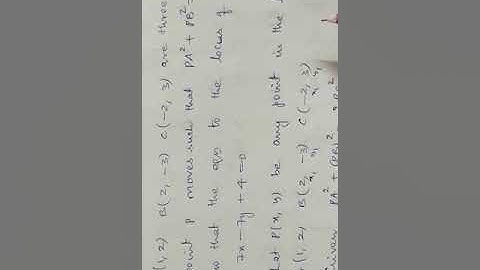 (1, 2) B(2, -3) C(-2, 3) are three
point P moves such that PA² + PB² =
that the eqn to the locus of
7x - 7y + 4 = 0
Let P(x, y) be any point in the
(1, 2) B(2, -3) C(-2, 3)
x₁ y₁ x₁ y₁
Given PA² + (PB)²